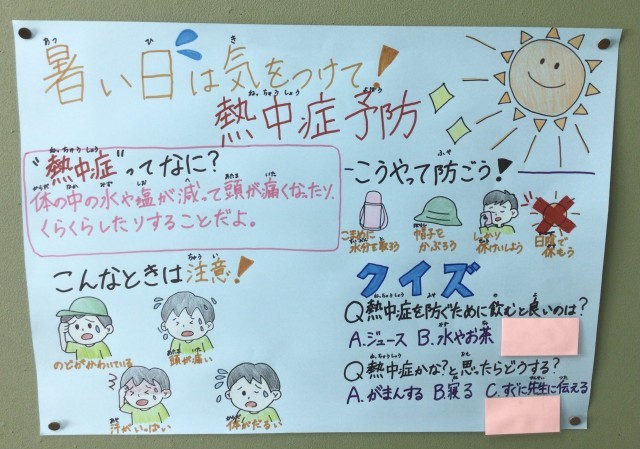 暑い日は気をつけて!
熱中症予防
"熱中症"ってなに?
体の中の水や塩が減って頭が痛くなったり、
くらくらしたりすることだよ。
こんなときは注意!
のどがかわいている
頭が痛い
汗がいっぱい
体がだるい
こうやって防ごう!
こまめに
水分を取ろう
帽子を
かぶろう
しっかり
休けいしよう
日陰で
休もう
クイズ
Q熱中症を防ぐために飲むと良いのは?
A.ジュース B.水やお茶
Q熱中症かな?と思ったらどうする?
A.がまんする B.寝る C.すぐに先生に伝える